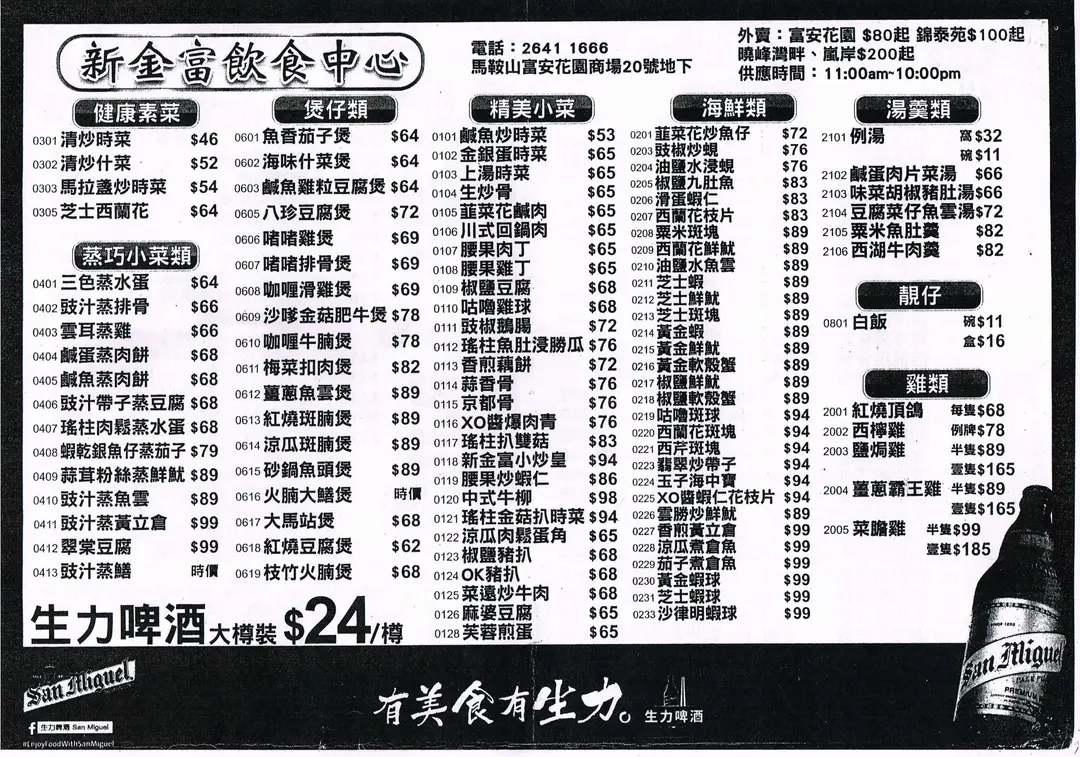 新金富飲食中心
電話：2641 1666
馬鞍山富安花園商場20號地下
外賣：富安花園 $80起 錦泰苑$100起
曉峰灣畔、嵐岸$200起
供應時間：11:00am~10:00pm
健康素菜
0301 清炒時菜 $46
0302 清炒什菜 $52
0303 馬拉盞炒時菜 $54
0305 芝士西蘭花 $64
蒸巧小菜類
0401 三色蒸水蛋 $64
0402 豉汁蒸排骨 $66
0403 雲耳蒸雞 $66
0404 鹹蛋蒸肉餅 $68
0405 鹹魚蒸肉餅 $68
0406 豉汁帶子蒸豆腐 $68
0407 瑤柱肉鬆蒸水蛋 $68
0408 蝦乾銀魚仔蒸茄子 $79
0409 蒜茸粉絲蒸鮮魷 $89
0410 豉汁蒸魚雲 $89
0411 豉汁蒸黃立倉 $99
0412 翠棠豆腐 $99
0413 豉汁蒸鱔 時價
煲仔類
0601 魚香茄子煲 $64
0602 海味什菜煲 $64
0603 鹹魚雞粒豆腐煲 $64
0605 八珍豆腐煲 $72
0606 啫啫雞煲 $69
0607 啫啫排骨煲 $69
0608 咖喱滑雞煲 $69
0609 沙嗲金菇肥牛煲 $78
0610 咖喱牛腩煲 $78
0611 梅菜扣肉煲 $82
0612 薑蔥魚雲煲 $89
0613 紅燒斑腩煲 $89
0614 涼瓜斑腩煲 $89
0615 砂鍋魚頭煲 $89
0616 火腩大鱔煲 時價
0617 大馬站煲 $68
0618 紅燒豆腐煲 $62
0619 枝竹火腩煲 $68
精美小菜
0101 鹹魚炒時菜 $53
0102 金銀蛋時菜 $65
0103 上湯時菜 $65
0104 生炒骨 $65
0105 韮菜花鹹肉 $65
0106 川式回鍋肉 $65
0107 腰果肉丁 $65
0108 腰果雞丁 $65
0109 椒鹽豆腐 $68
0110 咕嚕雞球 $68
0111 豉椒鵝腸 $72
0112 瑤柱魚肚浸勝瓜 $76
0113 香煎藕餅 $72
0114 蒜香骨 $76
0115 京都骨 $76
0116 XO醬爆肉青 $76
0117 瑤柱扒雙菇 $83
0118 新金富小炒皇 $94
0119 腰果炒蝦仁 $86
0120 中式牛柳 $98
0121 瑤柱金菇扒時菜 $94
0122 涼瓜肉鬆蛋角 $65
0123 椒鹽豬扒 $68
0124 OK豬扒 $68
0125 菜遠炒牛肉 $68
0126 麻婆豆腐 $65
0128 芙蓉煎蛋 $65
海鮮類
0201 韮菜花炒魚仔 $72
0203 豉椒炒蜆 $76
0204 油鹽水浸蜆 $76
0205 椒鹽九肚魚 $83
0206 滑蛋蝦仁 $83
0207 西蘭花枝片 $83
0208 粟米斑塊 $89
0209 西蘭花鮮魷 $89
0210 油鹽水魚雲 $89
0211 芝士蝦 $89
0212 芝士鮮魷 $89
0213 芝士斑塊 $89
0214 黃金蝦 $89
0215 黃金鮮魷 $89
0216 黃金軟殼蟹 $89
0217 椒鹽鮮魷 $89
0218 椒鹽軟殼蟹 $89
0219 咕嚕斑球 $94
0220 西蘭花斑塊 $94
0221 西芹斑塊 $94
0223 翡翠炒帶子 $94
0224 玉子海中寶 $94
0225 XO醬蝦仁花枝片 $94
0226 雲勝炒鮮魷 $89
0227 香煎黃立倉 $99
0228 涼瓜煮倉魚 $99
0229 茄子煮倉魚 $99
0230 黃金蝦球 $99
0231 芝士蝦球 $99
0233 沙律明蝦球 $99
湯羹類
2101 例湯 窩$32
碗$11
2102 鹹蛋肉片菜湯 $66
2103 味菜胡椒豬肚湯$66
2104 豆腐菜仔魚雲湯$72
2105 粟米魚肚羹 $82
2106 西湖牛肉羹 $82
靚仔
0801 白飯 碗$11
盒$16
雞類
2001 紅燒頂鴿 每隻$68
2002 西檸雞 例牌$78
2003 鹽焗雞 半隻$89
壹隻$165
2004 薑蔥霸王雞 半隻$89
壹隻$165
2005 菜膽雞 半隻$99
壹隻$185
生力啤酒大樽裝 $24/樽
San Miguel
生力啤酒 San Miguel
#EnjoyFoodWithSanMiguel
有美食有生力。
生力啤酒
San Miguel
PREMIUM